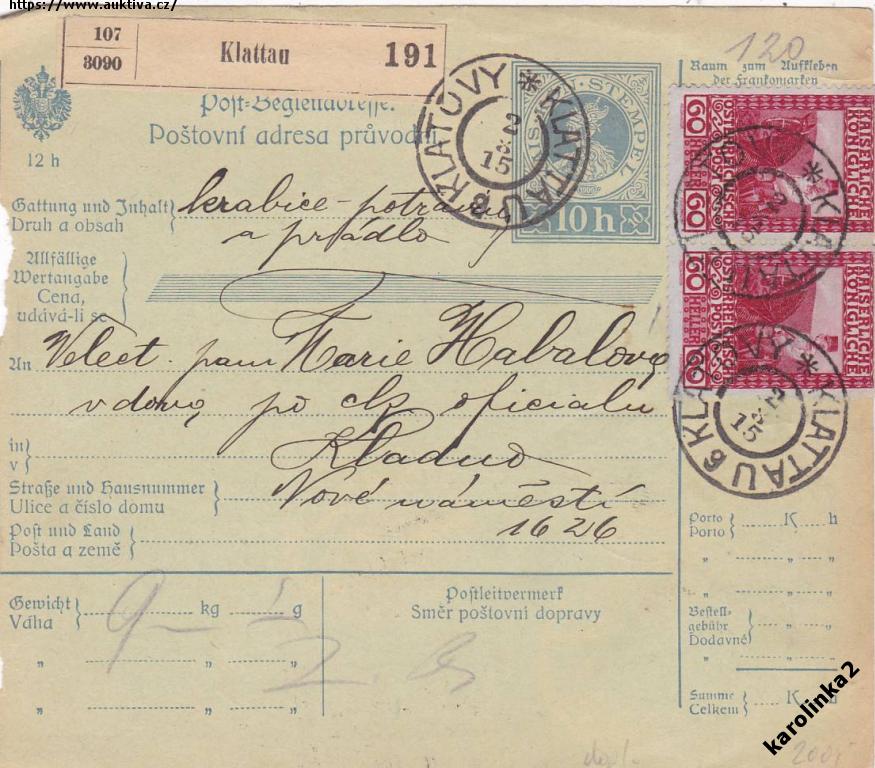 https://www.auktiva.cz/
107
3090
Klattau
191
12 h
Post-Begleitadresse.
Poštovní adresa průvodní
KLATOVY * KLATTAU 6
2
15
STEMPEL
10 h
120
Raum zum Aufkleben
der Frankomarken
60 KAISERLICHE KÖNIGLICHE ÖSTERREICHISCHE POST 60
60 KAISERLICHE KÖNIGLICHE ÖSTERREICHISCHE POST 60 HELLER
KLATOVY * KLATTAU 6
2
15
Gattung und Inhalt
Druh a obsah
krabice - potraviny
a prádlo
Allfällige
Wertangabe
Cena,
udává-li se
An
Velect. paní Marie Habalová
vdova po c.k. oficialu
in
v
Kladno
Straße und Hausnummer
Ulice a číslo domu
Nové náměstí
1626
Post und Land
Pošta a země
Porto
Porto
K h
" " "
" " "
Bestell-
gebühr
Dodavné
" "
" "
Summe
Celkem
K h
Gewicht
Váha
9 kg g
" " "
" " "
Postleitvermerk
Směr poštovní dopravy
karolinka2
dopl.